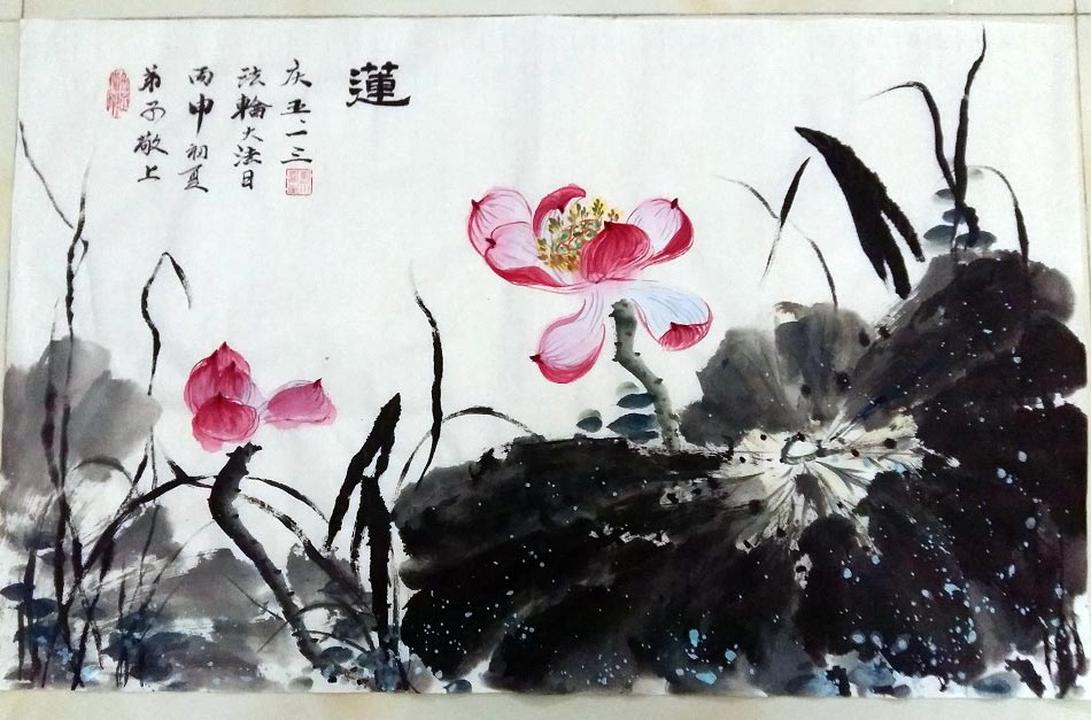 蓮
庆五.一三
法輪大法日
丙申初夏
弟子敬上